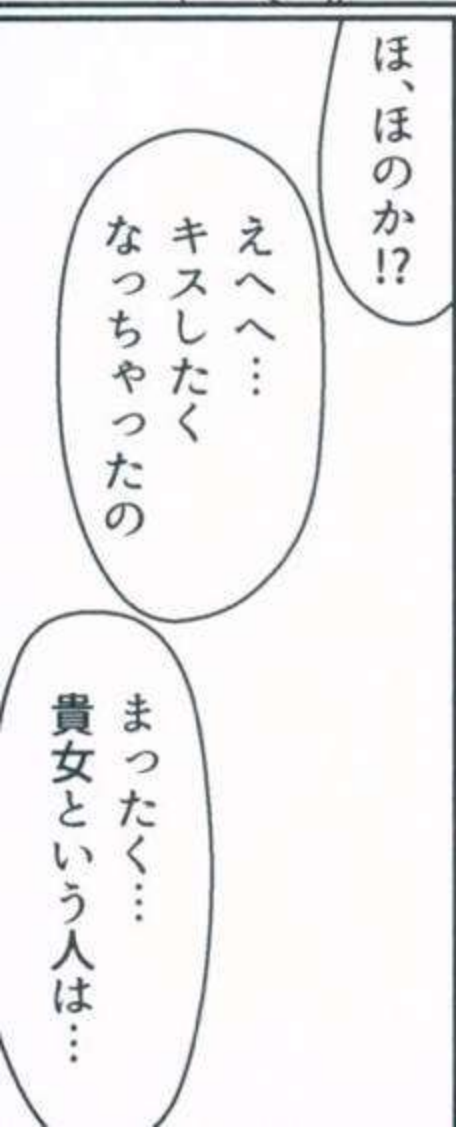 ほ、ほのか!?
えへへ…
キスしたく
なっちゃったの
まったく…
貴女という人は…